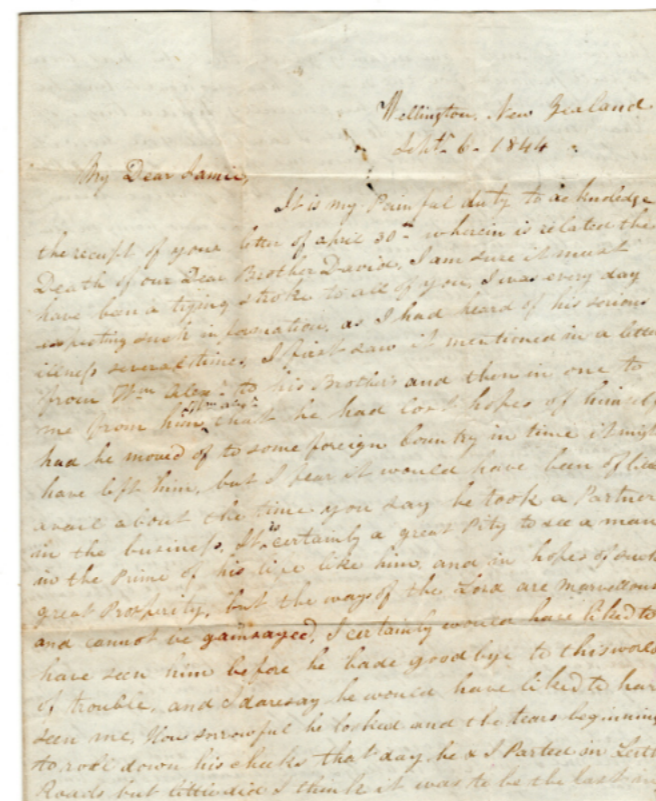 Wellington, New Zealand
Sept. 6 - 1844
My Dear Jamie,
It is my Painful duty to acknoledge
the receipt of your letter of april 30th wherein is related the
Death of our Dear Brother David, I am sure it must
have been a trying stroke to all of you, I was every day
expecting such information, as I had heard of his serious
illness several times, I first saw it mentioned in a letter
from Wm Alexr to his Brother and then in one to
me from him that he had lost hopes of himself
had he moved of to some foreign Country in time it might
have left him, but I fear it would have been of little
avail about the time you say he took a Partner
in the business, It is certainly a great Pity to see a man
in the Prime of his life like him, and in hopes of such
great Prosperity, but the ways of the Lord are marvellous
and cannot be gainsayed, I certainly would have liked to
have seen him before he bade goodbye to this world
of trouble, and I daresay he would have liked to have
seen me, How sorrowful he looked and the tears beginning
to roll down his cheeks that day he & I Parted in Leith
Roads but little did I think it was to be the last